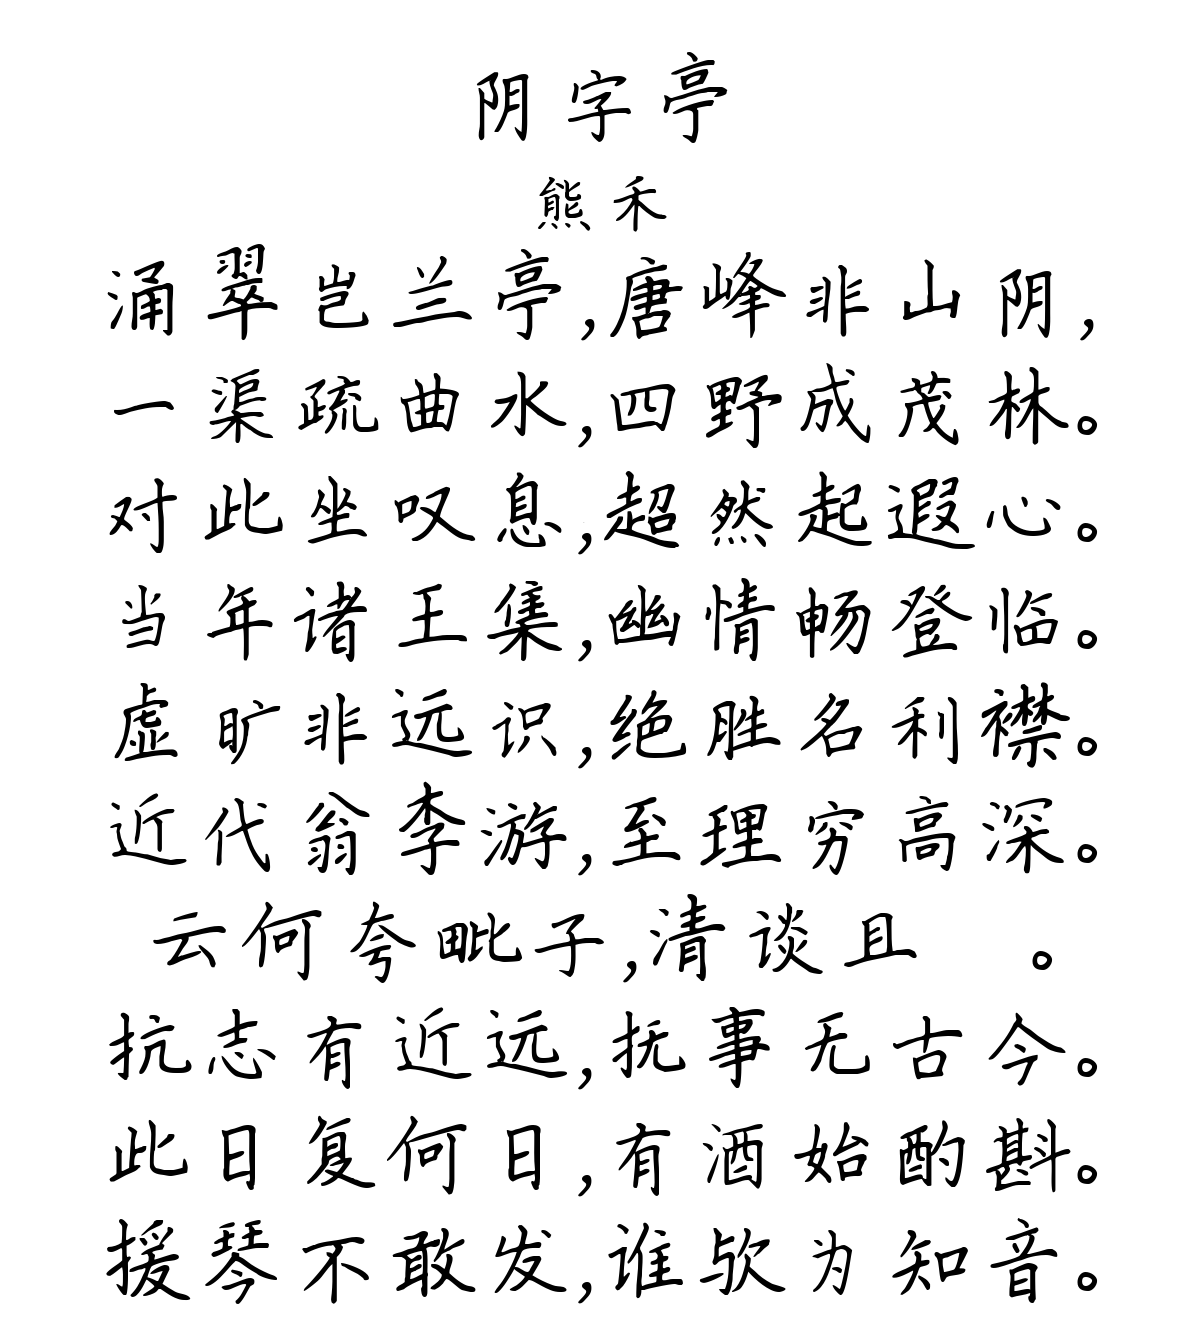 阴字亭
熊禾
涌翠岂兰亭,唐峰非山阴,
一渠疏曲水,四野成茂林。
对此坐叹息,超然起遐心。
当年诸王集,幽情畅登临。
虚旷非远识,绝胜名利襟。
近代翁李游,至理穷高深。
云何夸毗子,清谈且 。
抗志有近远,抚事无古今。
此日复何日,有酒始酌斟。
援琴不敢发,谁欤为知音。